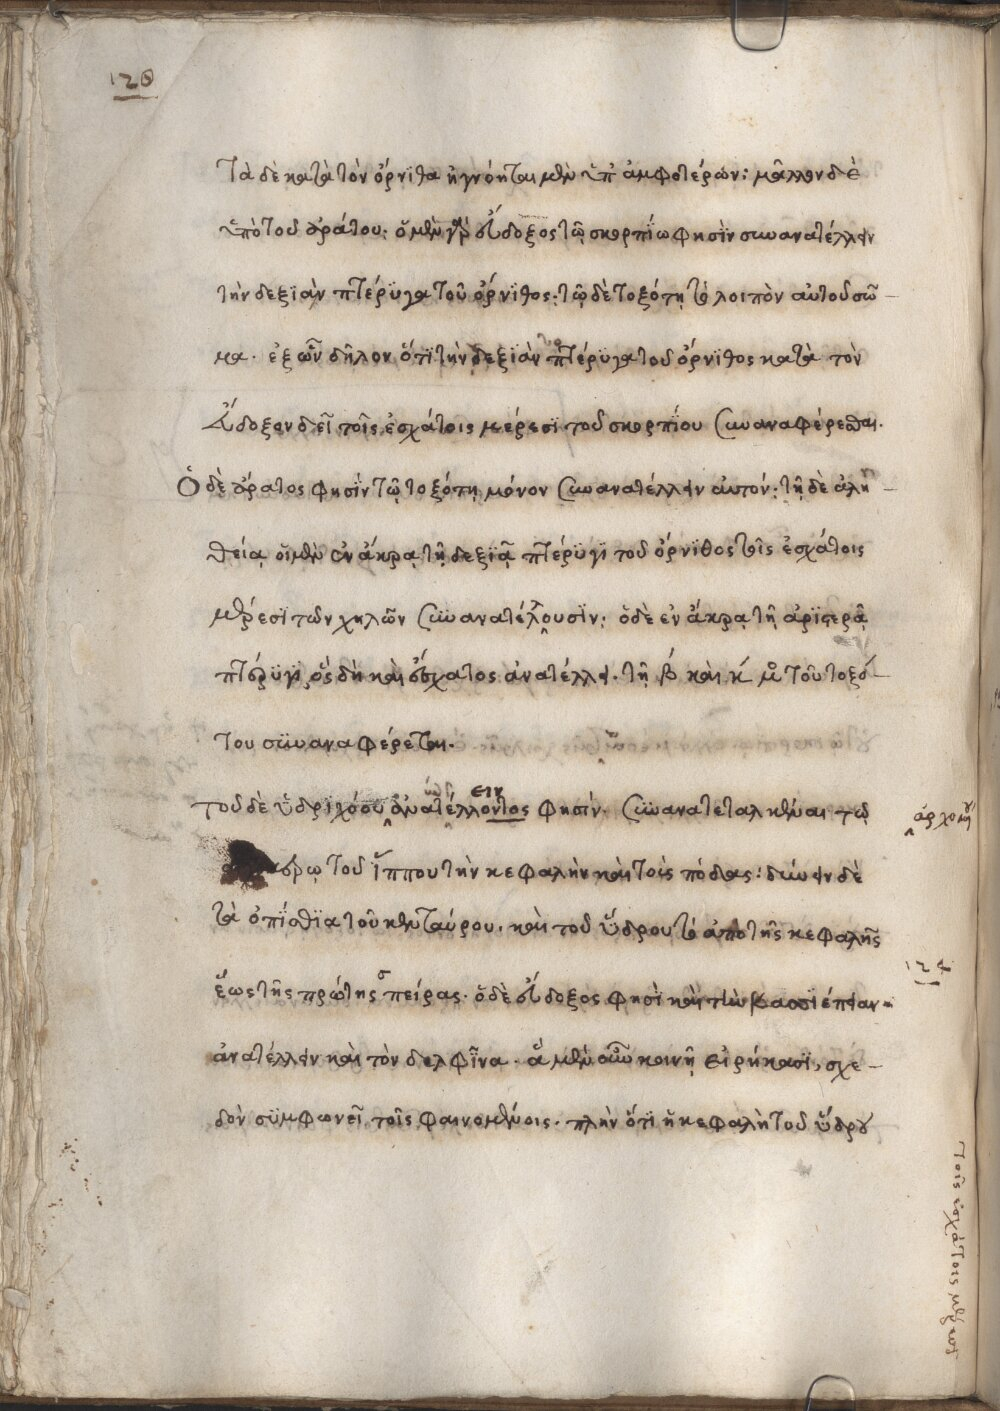 120
Τὰ δὲ κατὰ τὸν ὄρνιθα ἠγνόηται μὲν ὑπ' ἀμφοτέρων· μᾶλλον δὲ
ὑπὸ τοῦ ἀράτου· ὁ μὲν γὰρ εὔδοξος τῷ σκορπίῳ φησὶν συνανατέλλειν
τὴν δεξιὰν πτέρυγα τοῦ ὄρνιθος· τῷ δὲ τοξότῃ τὸ λοιπὸν αὐτοῦ σῶ-
μα. ἐξ ὧν δῆλον ὅτι τὴν δεξιὰν πτέρυγα τοῦ ὄρνιθος κατὰ τὸν
εὔδοξον δεῖ τοῖς ἐσχάτοις μέρεσι τοῦ σκορπίου συναναφέρεσθαι.
Ὁ δὲ ἄρατος φησὶν τῷ τοξότῃ μόνον συνανατέλλειν αὐτόν· τῇ δὲ ἀλη-
θείᾳ ὁ μὲν ἐν ἄκρᾳ τῇ δεξιᾷ πτέρυγι τοῦ ὄρνιθος τοῖς ἐσχάτοις
μέρεσι τῶν χηλῶν συνανατέλλουσιν· ὁ δὲ ἐν ἄκρᾳ τῇ ἀριστερᾷ
πτέρυγι, ὃς δὴ καὶ ἔσχατος ἀνατέλλει. τῇ β καὶ κ μο τοῦ τοξό-
του συναναφέρεται.
τοῦ δὲ ὑδροχόου ἀνατέλλοντος ειν φησὶν. συνανατεταλκέναι τῷ
ἀρχομένου
τοῦ ἵππου τὴν κεφαλὴν καὶ τοὺς πόδας· δύνειν δὲ
τὰ ὀπίσθια τοῦ κενταύρου. καὶ τοῦ ὕδρου τὸ ἀπὸ τῆς κεφαλῆς
ἕως τῆς πρώτης σπείρας. ὁ δὲ εὔδοξος φησὶ καὶ τὴν κασσιέπειαν
121
ἀνατέλλειν καὶ τὸν δελφῖνα. ἃ μὲν οὖν κοινῇ εἰρήκασι, σχε-
δὸν συμφωνεῖ τοῖς φαινομένοις. πλὴν ὅτι ἡ κεφαλὴ τοῦ ὕδρου
τοῖς ἐσχάτοις μέρεσι